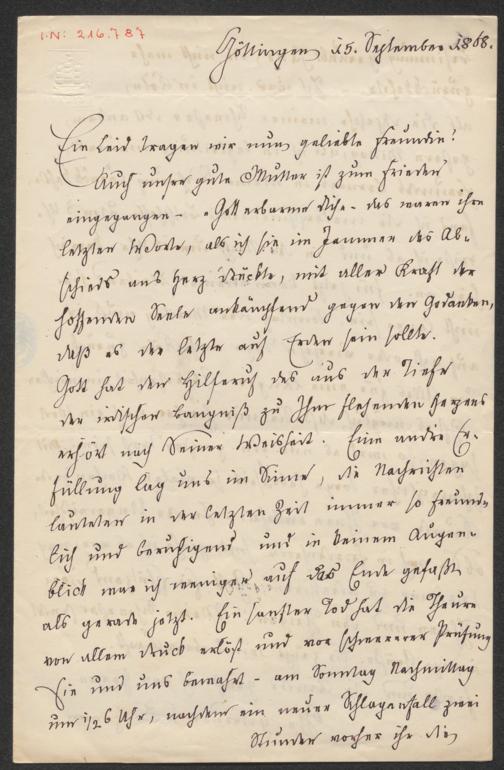 I.N: 216.787
Göttingen 15. September 1868.
Ein Leid tragen wir nun geliebte Freundin!
Auch unsre gute Mutter ist zum Frieden
eingegangen – „Gott erbarme Dich" – das waren ihre
letzten Worte, als ich sie im Jammer des Ab-
schieds ans Herz drückte, mit aller Kraft der
hoffenden Seele ankämpfend gegen den Gedanken,
daß es der letzte auf Erden sein sollte.
Gott hat den Hilferuf des aus der Tiefe
der irdischen Bangniß zu Ihm flehenden Herzens
erhört nach Seiner Weisheit. Eine andre Er-
füllung lag uns im Sinne, die Nachrichten
lauteten in der letzten Zeit immer so freund-
lich und beruhigend und in keinem Augen-
blick war ich weniger auf das Ende gefaßt
als gerade jetzt. Ein sanfter Tod hat die Theure
von allem Druck erlöst und vor schwererer Prüfung
Sie und uns bewahrt – am Sonntag Nachmittag
um 1/2 6 Uhr, nachdem ein neuer Schlaganfall zwei
Stunden vorher ihr die